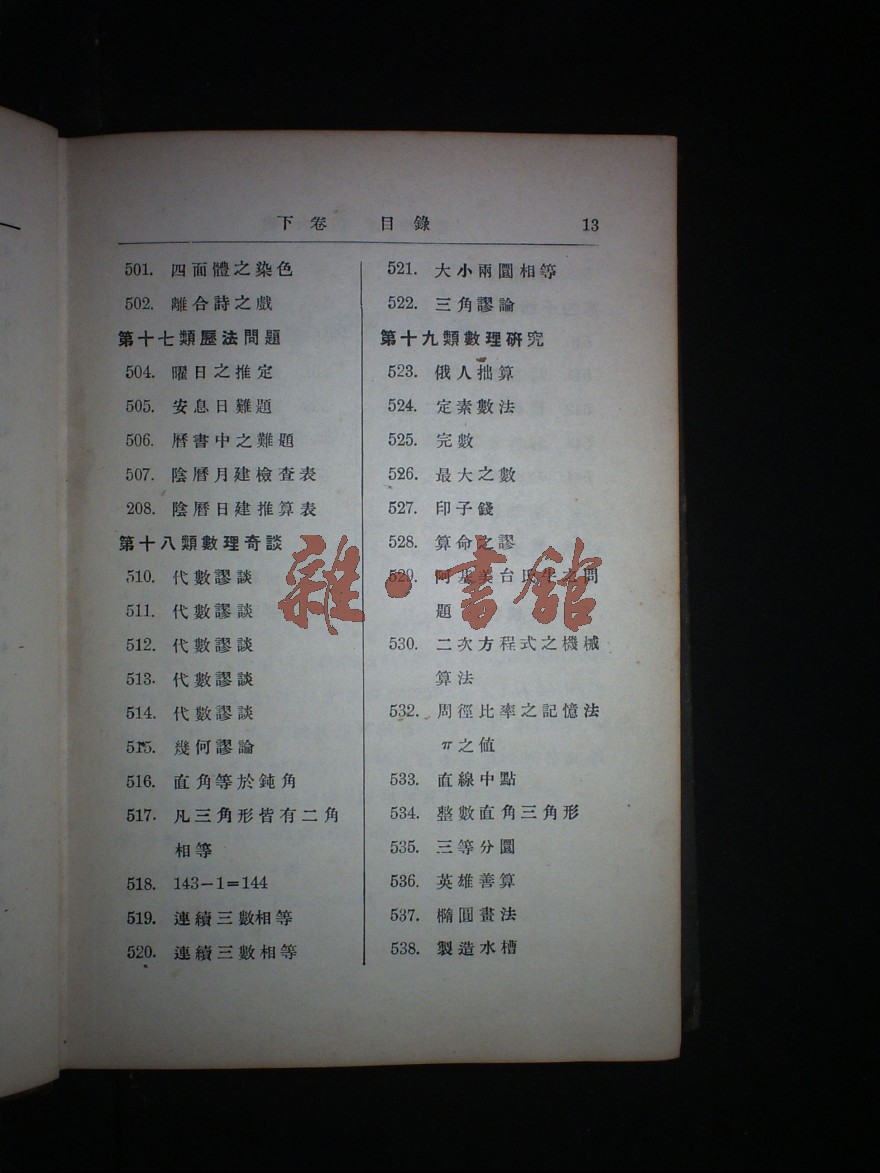 下卷 目錄 13
501. 四面體之染色
502. 離合詩之戲
第十七類歷法問題
504. 曜日之推定
505. 安息日難題
506. 曆書中之難題
507. 陰曆月建檢查表
208. 陰曆日建推算表
第十八類數理奇談
510. 代數謬談
511. 代數謬談
512. 代數謬談
513. 代數謬談
514. 代數謬談
515. 幾何謬論
516. 直角等於鈍角
517. 凡三角形皆有二角
相等
518. 143-1=144
519. 連續三數相等
520. 連續三數相等
521. 大小兩圜相等
522. 三角謬論
第十九類數理研究
523. 俄人拙算
524. 定素數法
525. 完數
526. 最大之數
527. 印子錢
528. 算命之謬
529. 阿基美台氏牛之問
題
530. 二次方程式之機械
算法
532. 周徑比率之記憶法
π之値
533. 直線中點
534. 整數直角三角形
535. 三等分圜
536. 英雄善算
537. 橢圓畫法
538. 製造水槽
雜·書館